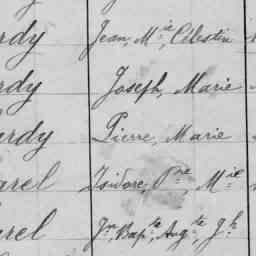 rdy Jean, M.ie, Célestin
rdy Joseph, Marie
rdy Pierre, Marie
arel Isidore, P.re, M.iel
arel J.n, Bap.te, Aug.te, J.h